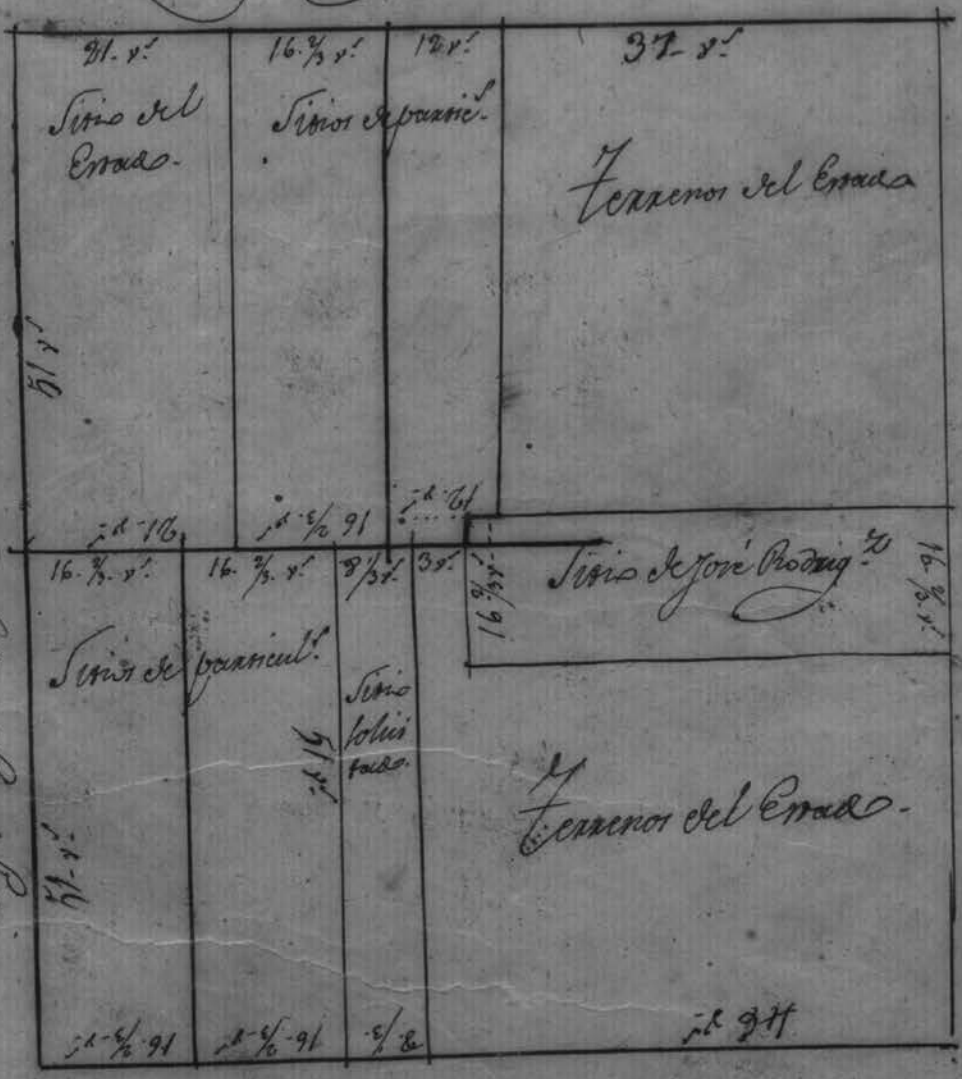 21- v.^s
16. 2/3 v.^s
12 v.^s
37- v.^s
Sitio del
Estado.
Sitios de partic.^s
Terrenos del Estado
51 v.^s
21- v.^s
16 2/3 v.^s
12- v.^s
16. 2/3. v.^s
16. 2/3. v.^s
8 1/3 v.^s
3 v.^s
16 2/3 v.^s
Sitio de José Rodrig.^z
16 2/3. v.^s
Sitios de particul.^s
Sitio
solici
tado.
51 v.^s
Terrenos del Estado.
51- v.^s
16- 2/3- v.^s
16- 2/3- v.^s
8- 1/3-
46 v.^s